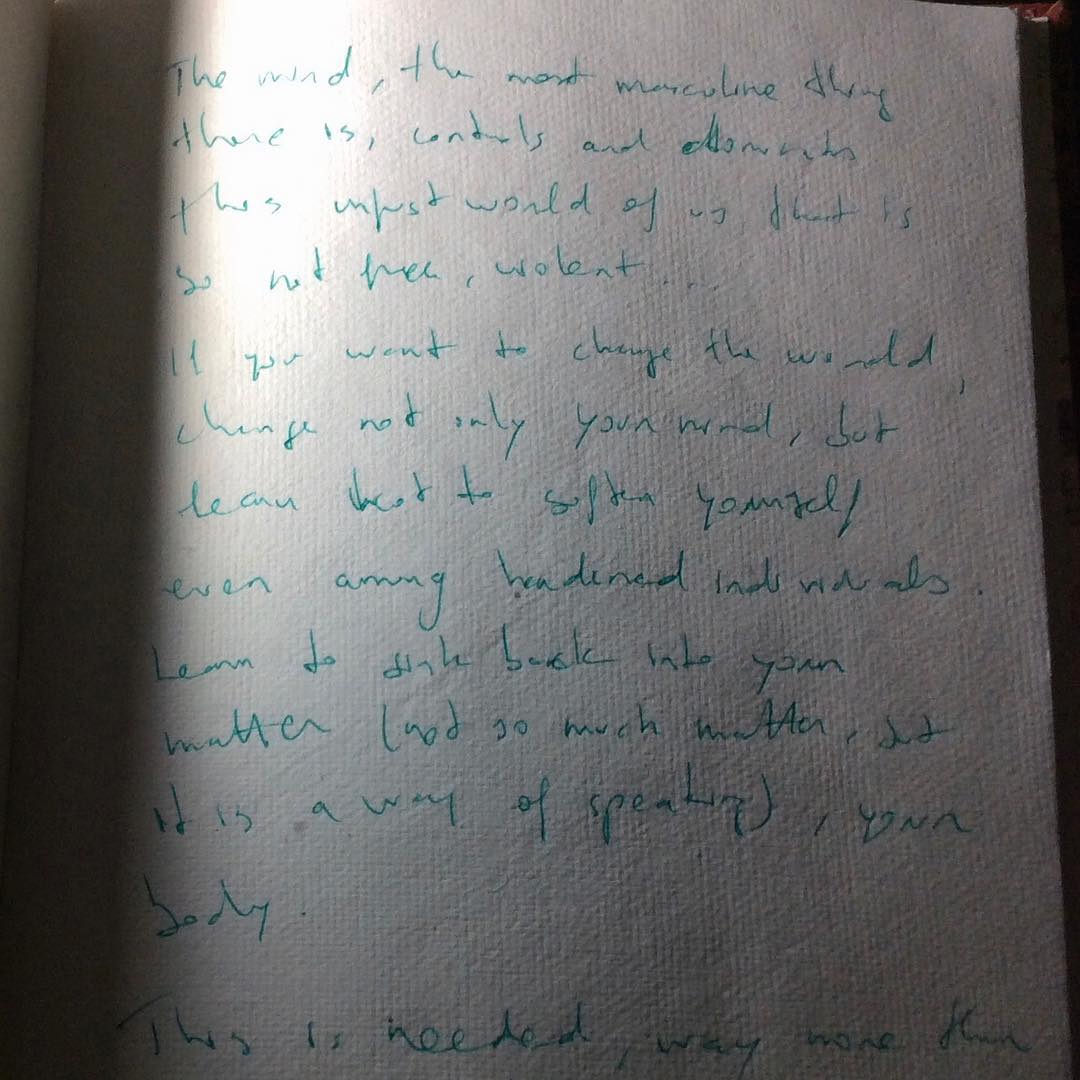 The mind, the most masculine thing
there is, controls and dominates
this unjust world of us that is
so not free, violent...
If you want to change the world,
change not only your mind, but
learn to soften yourself
even among hardened individuals.
Learn to sink back into your
matter (not so much matter, but
it is a way of speaking), your
body.
This is needed, way more than